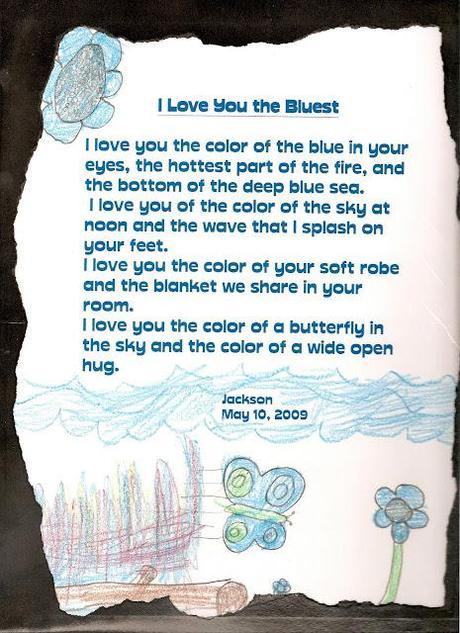 I Love You the Bluest
I love you the color of the blue in your
eyes, the hottest part of the fire, and
the bottom of the deep blue sea.
I love you of the color of the sky at
noon and the wave that I splash on
your feet.
I love you the color of your soft robe
and the blanket we share in your
room.
I love you the color of a butterfly in
the sky and the color of a wide open
hug.
Jackson
May 10, 2009